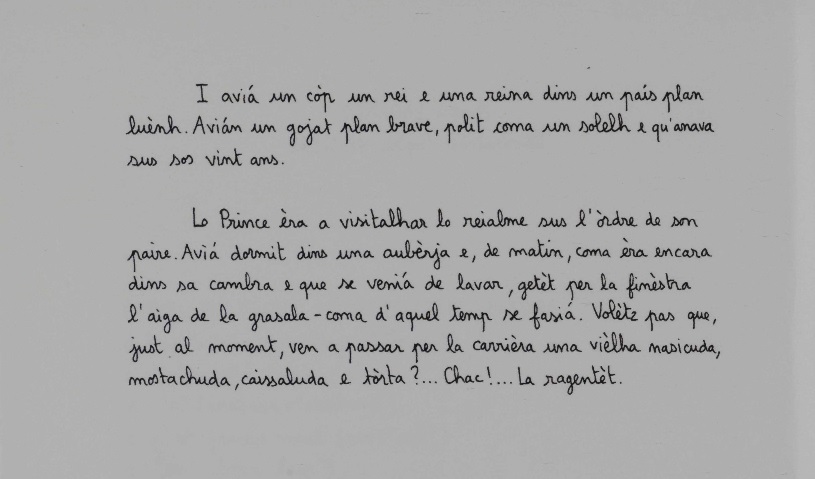 I aviá un còp un rei e una reina dins un país plan
luènh. Avián un gojat plan brave, polit coma un solelh e qu'anava
sus sos vint ans.
Lo Prince èra a visitalhar lo reialme sus l'òrdre de son
paire. Aviá dormit dins una aubèrja e, de matin, coma èra encara
dins sa cambra e que se veniá de lavar, getèt per la finèstra
l'aiga de la grasala - coma d'aquel temp se fasiá. Volètz pas que,
just al moment, ven a passar per la carrièra una vièlha nasicuda,
mostachuda, caissaluda e tòrta ?... Chac !... La ragentèt.